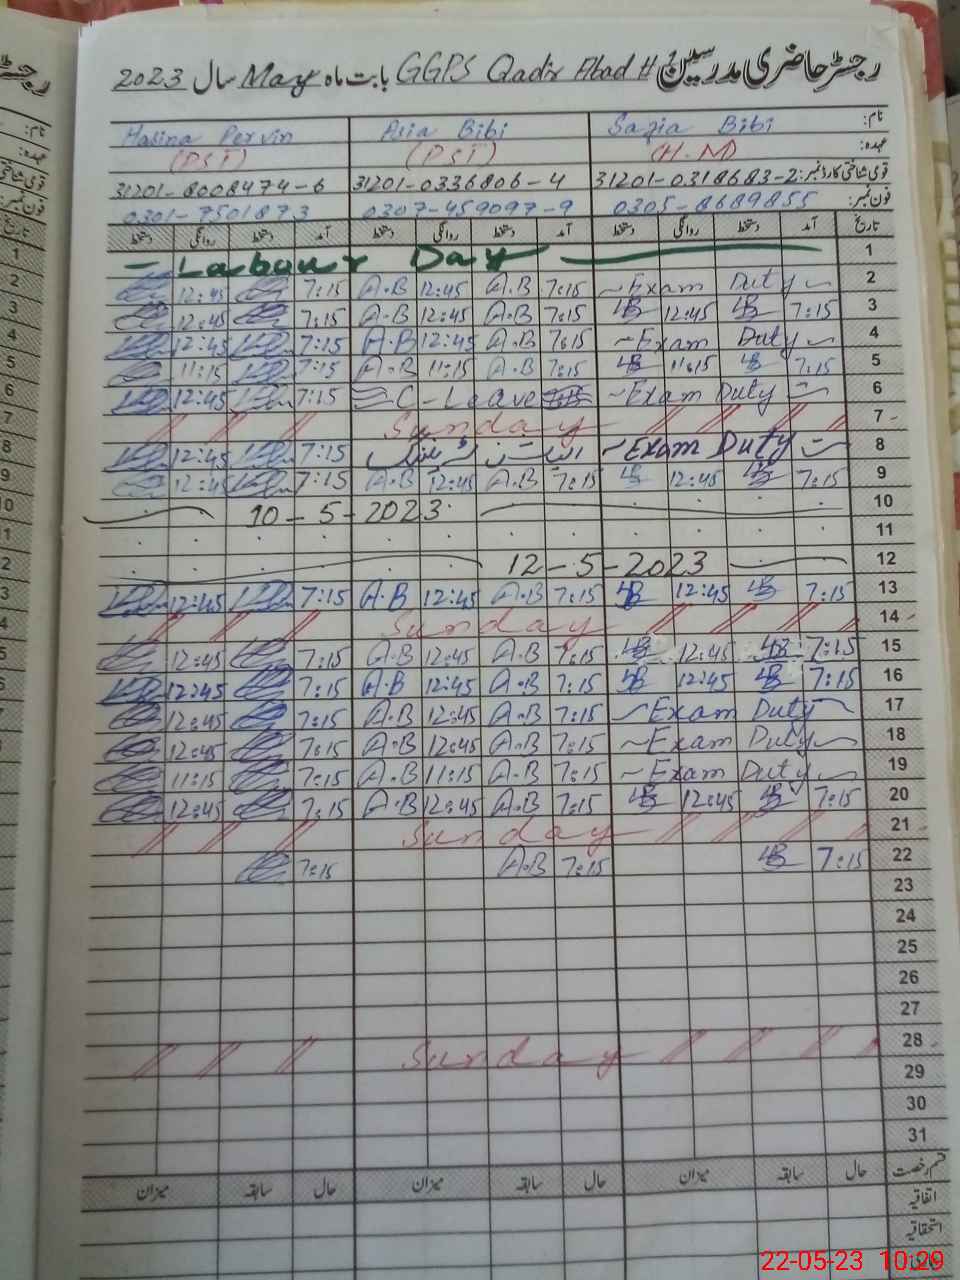 رجسٹر حاضری مدرسین GGPS Qadir Abad # بابت ماہ May سال 2023
نام: Sazia Bibi Asia Bibi Hasina Pervin
عہدہ: (H.M) (PST) (PST)
قومی شناختی کارڈ نمبر: 31201-0318683-2 31201-0336806-4 31201-8008474-6
فون نمبر: 0305-8689855 0307-459097-9 0301-7501873
تاریخ آمد دستخط روانگی دستخط آمد دستخط روانگی دستخط آمد دستخط روانگی دستخط
1 Labour Day
2 Exam Duty 7:15 A.B 12:45 A.B 7:15 12:45
3 7:15 12:45 7:15 A.B 12:45 A.B 7:15 12:45
4 Exam Duty 7:15 A.B 12:45 A.B 7:15 12:45
5 7:15 11:15 7:15 A.B 11:15 A.B 7:15 11:15
6 Exam Duty C-Leave 7:15 12:45
7 Sunday
8 Exam Duty 7:15 12:45
9 7:15 12:45 7:15 A.B 12:45 A.B 7:15 12:45
10 10-5-2023
11
12 12-5-2023
13 7:15 12:45 7:15 A.B 12:45 A.B 7:15 12:45
14 Sunday
15 7:15 12:45 7:15 A.B 12:45 A.B 7:15 12:45
16 7:15 12:45 7:15 A.B 12:45 A.B 7:15 12:45
17 Exam Duty 7:15 A.B 12:45 A.B 7:15 12:45
18 Exam Duty 7:15 A.B 12:45 A.B 7:15 12:45
19 Exam Duty 7:15 A.B 11:15 A.B 7:15 11:15
20 7:15 12:45 7:15 A.B 12:45 A.B 7:15 12:45
21 Sunday
22 7:15 7:15 A.B 7:15
23
24
25
26
27
28 Sunday
29
30
31
قسم رخصت حال سابقہ میزان حال سابقہ میزان حال سابقہ میزان
اتفاقیہ
استحقاقیہ
22-05-23 10:29